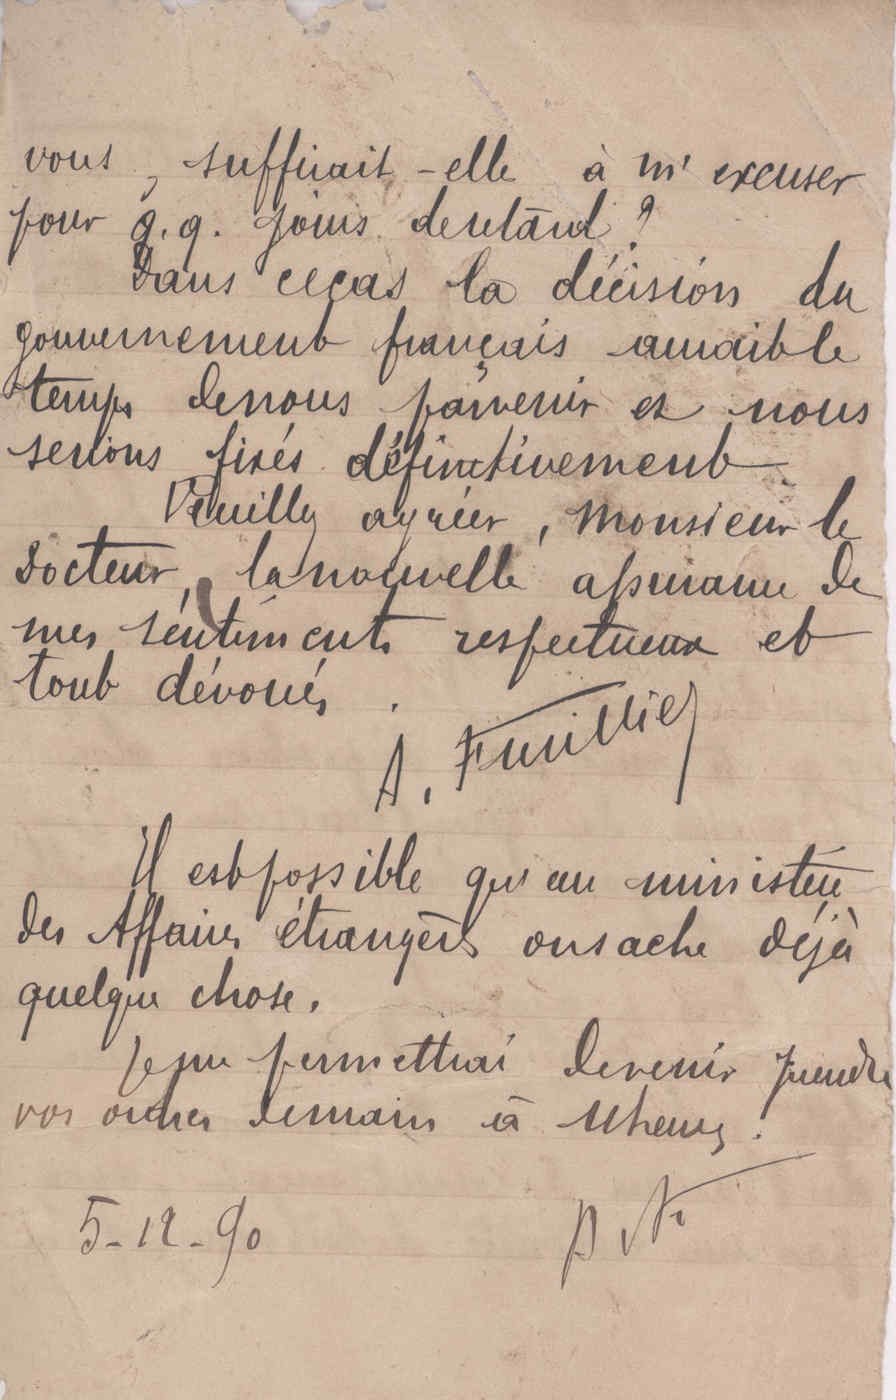 vous, suffirait-elle à m'excuser
pour q.q. jours de retard ?
Dans ce cas la décision du
gouvernement français aurait le
temps de nous parvenir et nous
serions fixés définitivement.
Veuillez agréer, Monsieur le
Docteur, la nouvelle assurance de
mes sentiments respectueux et
tout dévoués.
A. Feuillié
Il est possible qu'au ministère
des Affaires étrangères on sache déjà
quelque chose.
Je me permettrai de venir prendre
vos ordres demain à heures.
5-12-90